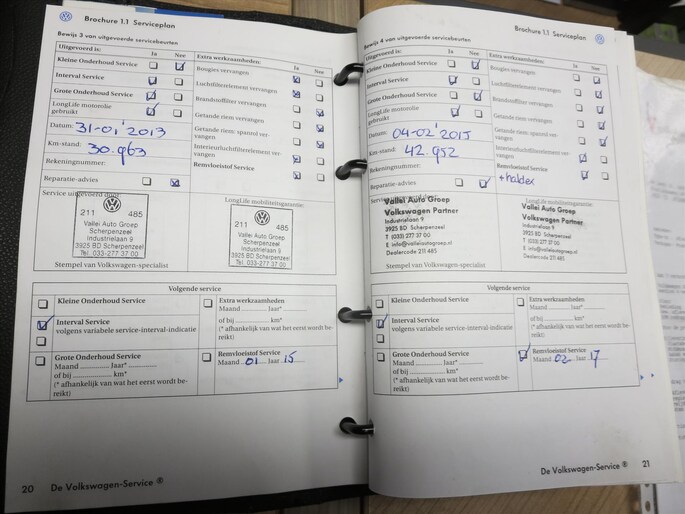 Brochure 1.1 Serviceplan
Bewijs 3 van uitgevoerde servicebeurten
Uitgevoerd is: Ja Nee
Kleine Onderhoud Service
Interval Service
Grote Onderhoud Service
LongLife motorolie
gebruikt
Datum: 31-01'2013
Km-stand: 30.963
Rekeningnummer:
Reparatie-advies
Extra werkzaamheden: Ja Nee
Bougies vervangen
Luchtfilterelement vervangen
Brandstoffilter vervangen
Getande riem vervangen
Getande riem: spanrol ver-
vangen
Interieurluchtfilterelement ver-
vangen
Remvloeistof Service
Service uitgevoerd door:
211 485
Vallei Auto Groep
Scherpenzeel
Industrielaan 9
3925 BD Scherpenzeel
Tel. 033-277 37 00
LongLife mobiliteitsgarantie:
211 485
Vallei Auto Groep
Scherpenzeel
Industrielaan 9
3925 BD Scherpenzeel
Tel. 033-277 37 00
Stempel van Volkswagen-specialist
Volgende service
Kleine Onderhoud Service
Interval Service
volgens variabele service-interval-indicatie
Grote Onderhoud Service
Maand ............ Jaar* ............
of bij ............ km*
(* afhankelijk van wat het eerst wordt be-
reikt)
Extra werkzaamheden
Maand ............ Jaar* ............
of bij ............ km*
(* afhankelijk van wat het eerst wordt be-
reikt)
Remvloeistof Service
Maand 01 Jaar 15
20 De Volkswagen-Service ®
Brochure 1.1 Serviceplan
Bewijs 4 van uitgevoerde servicebeurten
Uitgevoerd is: Ja Nee
Kleine Onderhoud Service
Interval Service
Grote Onderhoud Service
LongLife motorolie
gebruikt
Datum: 04-02'2015
Km-stand: 42.952
Rekeningnummer:
Reparatie-advies
Extra werkzaamheden: Ja Nee
Bougies vervangen
Luchtfilterelement vervangen
Brandstoffilter vervangen
Getande riem vervangen
Getande riem: spanrol ver-
vangen
Interieurluchtfilterelement ver-
vangen
Remvloeistof Service
+haldex
Vallei Auto Groep
Volkswagen Partner
Industrielaan 9
3925 BD Scherpenzeel
T (033) 277 37 00
E info@valleiautogroep.nl
Dealercode 211 485
Vallei Auto Groep
Volkswagen Partner
Industrielaan 9
3925 BD Scherpenzeel
T (033) 277 37 00
E info@valleiautogroep.nl
Dealercode 211 485
Stempel van Volkswagen-specialist
Volgende service
Kleine Onderhoud Service
Interval Service
volgens variabele service-interval-indicatie
Grote Onderhoud Service
Maand ............ Jaar* ............
of bij ............ km*
(* afhankelijk van wat het eerst wordt be-
reikt)
Extra werkzaamheden
Maand ............ Jaar* ............
of bij ............ km*
(* afhankelijk van wat het eerst wordt be-
reikt)
Remvloeistof Service
Maand 02 Jaar 17
De Volkswagen-Service ® 21